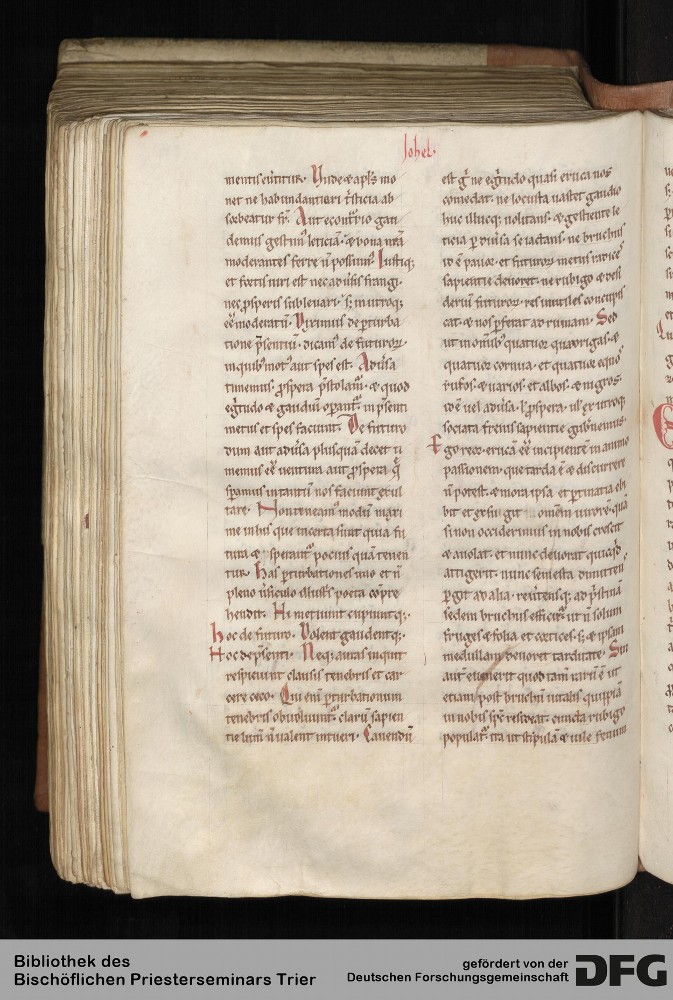 Iohel.
mentis eútitur. Unde & apłs mo
net ne habundantiori tristicia ab
sorbeatur fr̄. Aut econtrio gau
demus gestimꝰ leticia. & bona nr̄a
moderantes ferre n̄ possumꝰ. Iustiq;
et fortis uiri est nec aduersis frangi.
nec prosperis subleuari. s; in utroq;
eē moderatū. Diximus de perturba
tione p̄sentiū. dicamꝰ de futuroꝝ
in quib; metꝰ aut spes est. Aduersa
timemus. prospera p̄stolamᷣ. & quod
egritudo & gaudiū operantᷣ in p̄senti
metus et spes faciunt. De futuro
dum aut aduersa plusquā decet ti
memus eē uentura aut prospera q̄
speramus in tantū nos faciunt exul
tare. Non teneamᷣ modū maxi
me in his que incerta sunt quia fu
tura & sperantᷣ pocius quā tenen
tur. Has perturbationes uno et n̄
pleno uersiculo illustris poeta cōpre
hendit. Hi metuunt cupiuntq;.
Hoc de futuro. Dolent gaudentq;.
Hoc de p̄senti. Neq; auras inquit
respiciunt clausis tenebris et car
cere ceco. Qui enī perturbationum
tenebris obuoluuntᷣ. clarū sapien
tie lum̄ n̄ ualent intueri. Cauendū
est gͥ ne egritudo quasi eruca nos
comedat. ne locusta uastet gaudio
huc illucq; uolitans. & gestiente le
ticia per diuersa se iactans. ne bruchus
id ē pauor. et futuroꝝ metus radices
sapientie deuoret. ne rubigo & desi
deriū futuroꝝ. res inutiles concupis
cat. & nos perferat ad ruinam. Sed
ut in omnib; quatuor quadrigas. &
quatuor cornua. et quatuor equos
rufos. & uarios. et albos. & nigros.
id ē uel aduersa. ł prospera. uł ex utroq;
sociata frenis sapientie gubernemus.
Ego reor erucā eē incipientē in animo
passionem. que tarda ē & discurrere
n̄ potest. & mora ipsa et pertinatia ehi
bit et exsugit omnem uirorē. quā
si non occiderimus in nobis crescit
& auolat. et nunc deuorat quicqd
attigerit. nunc semesa dimittens
pergit ad alia. reuertensq; ad p̄stinā
sedem bruchus efficitᷣ. ut n̄ solum
fruges & folia et cortices. s; & ipsam
medullam deuoret tarditate. Sin
aut euenerit quod tam rarū ē ut
etiam post bruchū uitalis quippiā
in nobis spē resideat. cuncta rubigo
populatᷣ. ita ut stipulā & uile fenum
Bibliothek des
Bischöflichen Priesterseminars Trier
gefördert von der
Deutschen Forschungsgemeinschaft
DFG